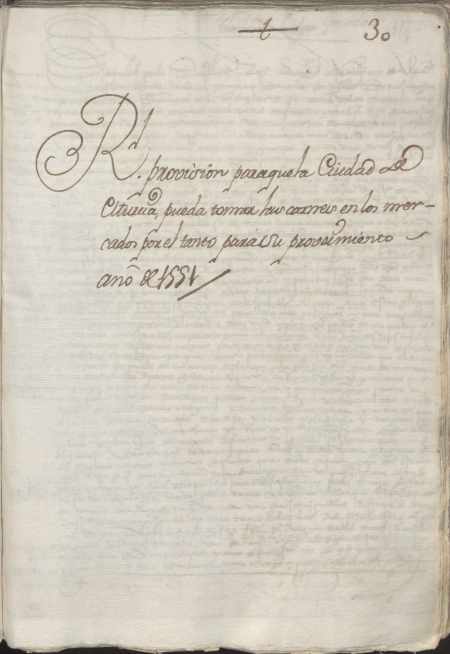 t 30
Rl
provision para que la Ciudad de
pueda tomar las carnes en los mer-
cados por el tanto para su proveimiento
año de 1551